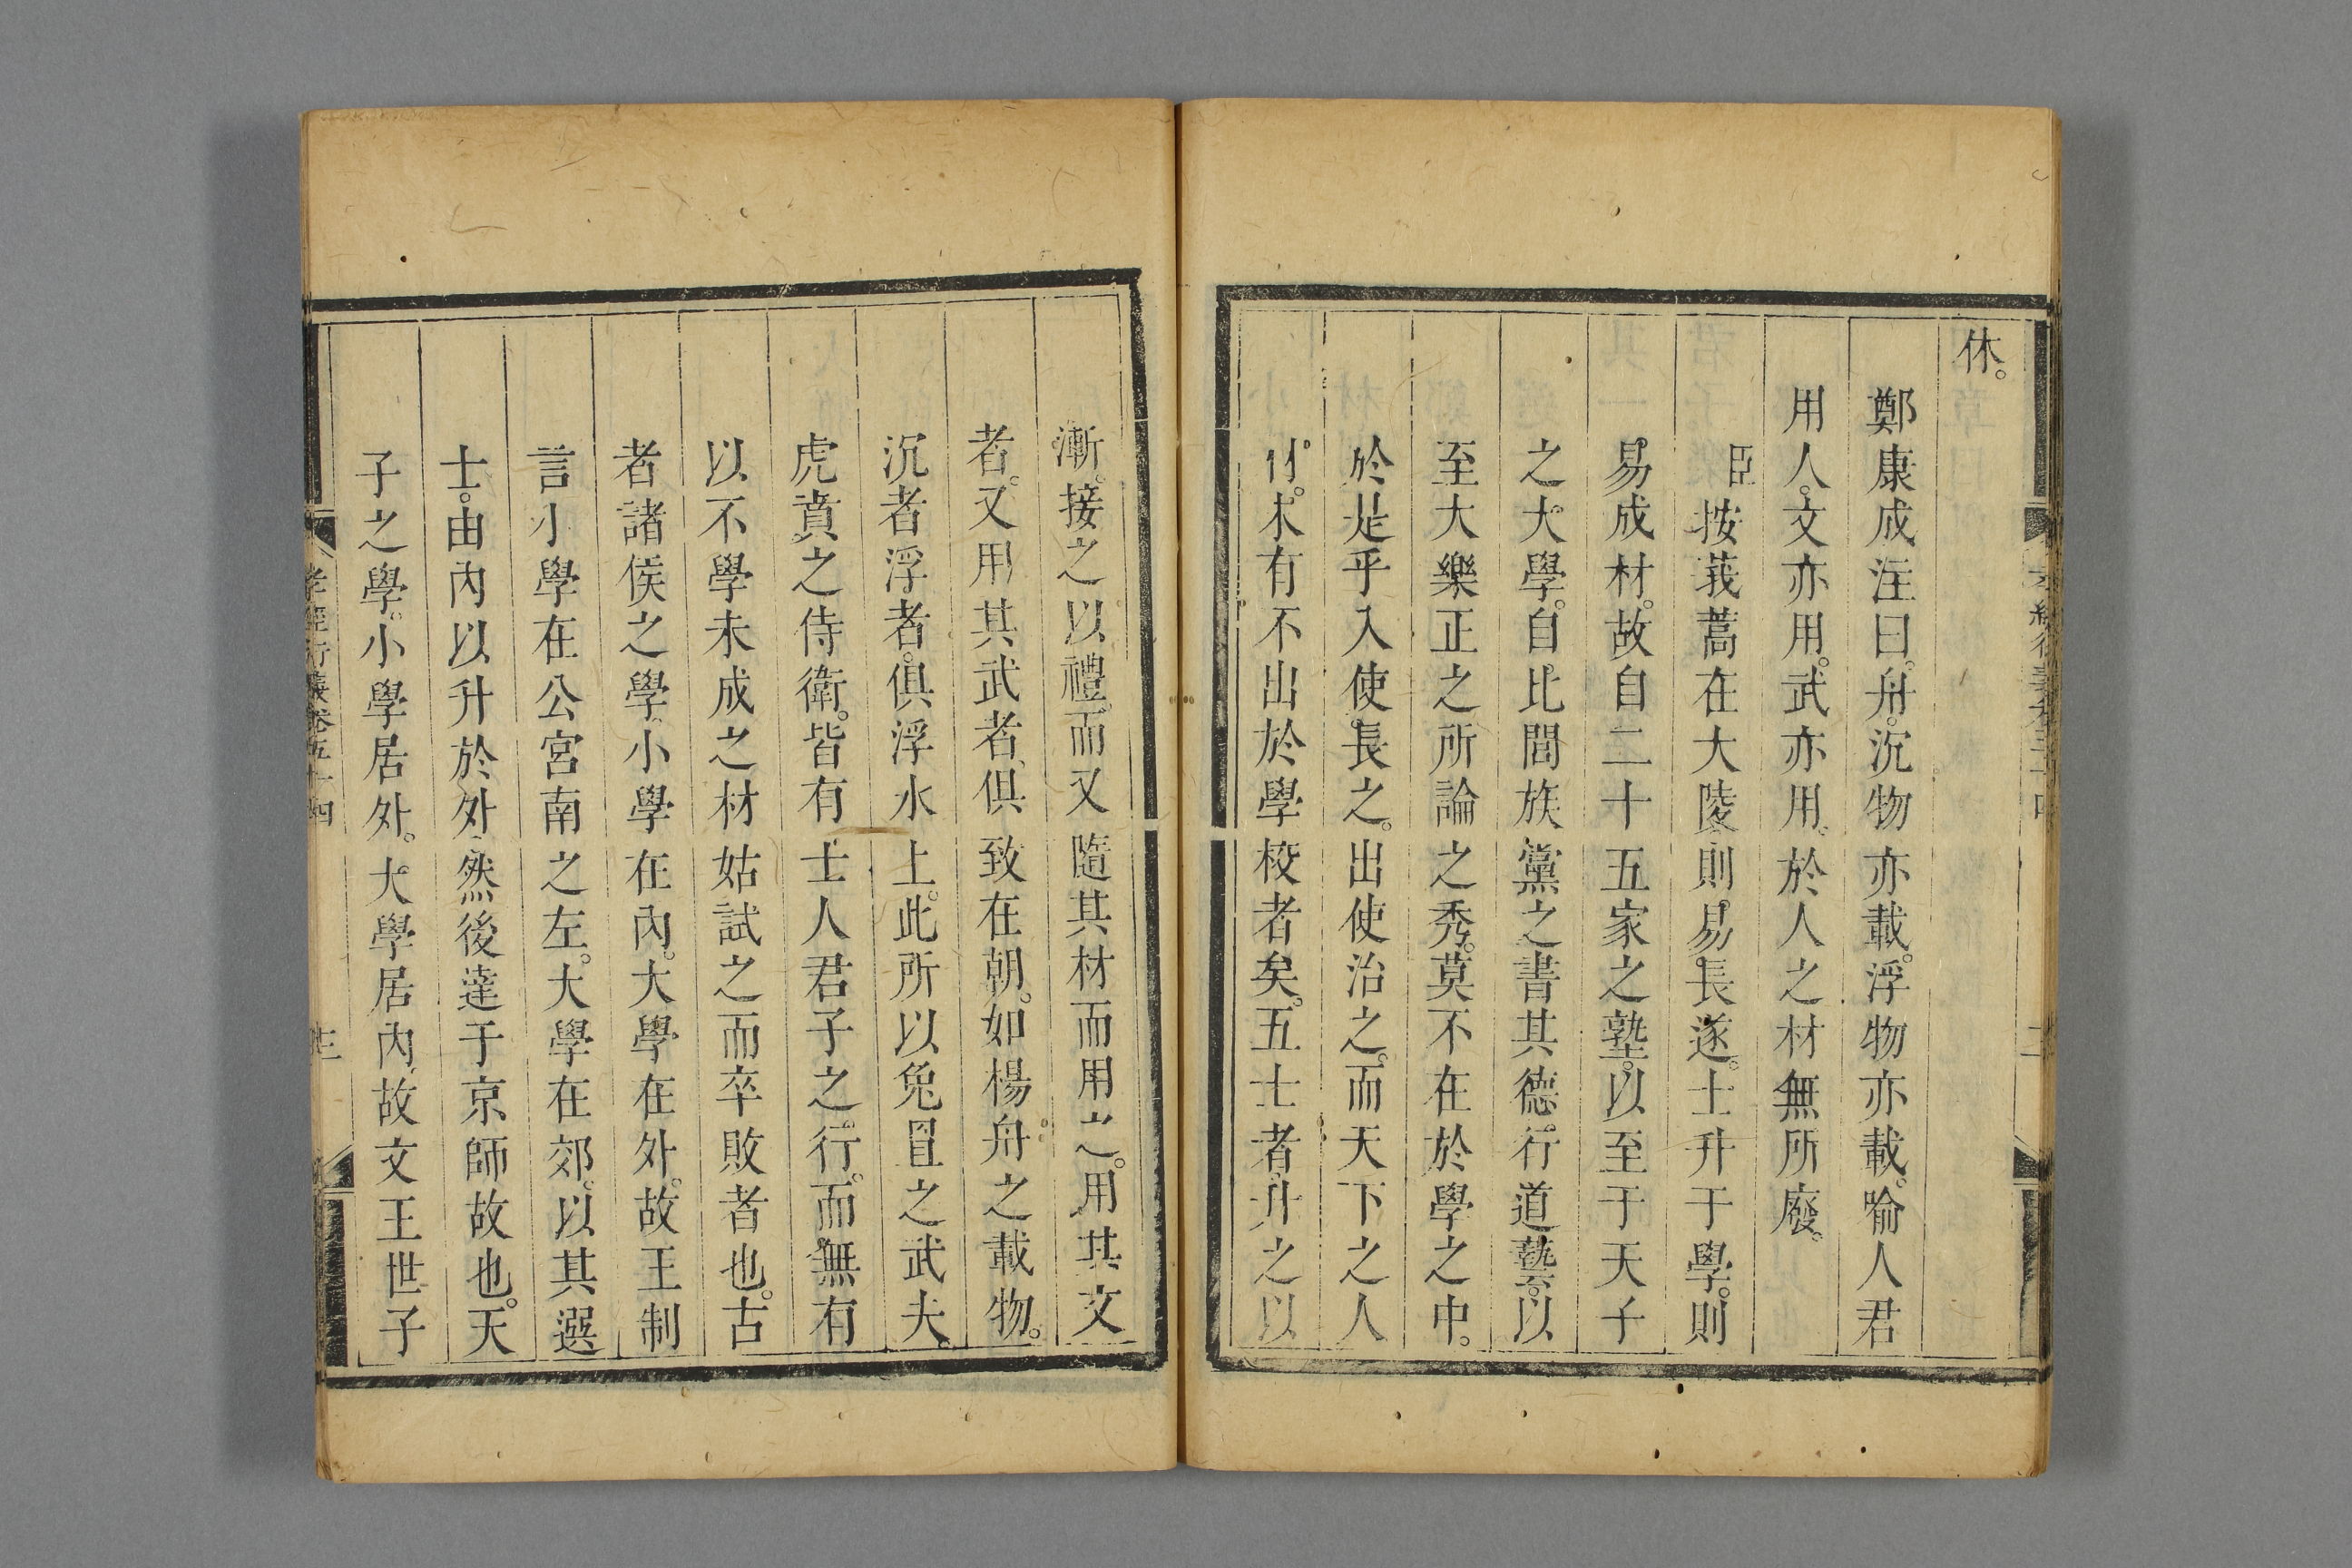 休。
鄭康成注曰。舟。沉物亦載。浮物亦載。喻人君
用人。文亦用。武亦用。於人之材無所廢。
臣按莪蒿在大陵。則易長遂。士升于學。則
易成材。故自二十五家之塾。以至于天子
之大學。自比閭族黨之書其德行道藝。以
至大樂正之所論之秀。莫不在於學之中。
於是乎入使長之。出使治之。而天下之人
材。未有不出於學校者矣。五士者升之以
漸。接之以禮。而又隨其材而用之。用其文
者。又用其武者。俱致在朝。如楊舟之載物。
沉者浮者。俱浮水上。此所以兔罝之武夫。
虎賁之侍衛。皆有士人君子之行。而無有
以不學未成之材姑試之而卒敗者也。古
者諸侯之學。小學在內。大學在外。故王制
言小學在公宮南之左。大學在郊。以其選
士。由內以升於外。然後達于京師故也。天
子之學。小學居外。大學居內。故文王世子
孝經衍義卷五十四